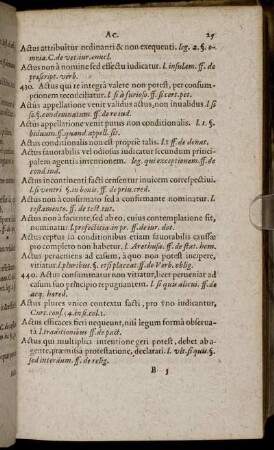 AC. 25
Actus attribuitur ordinanti & non exequenti. leg. 2. §. o-
mnia. C. de vet. iur. enucl.
Actus non à nomine sed effectu iudicatur. l. insulam. ff. de
præscript. verb.
430. Actus qui re integrâ valete non potest, per consum-
ptionem reconciliatur. l. si à furioso. ff. si cert. pet.
Actus appellatione venit validus actus, non inualidus. l. si
se. §. condemnatum. ff. de re iud.
Actus appellatione venit purus non conditionalis. l. 1. §.
biduum. ff. quand. appell. sit.
Actus conditionalis non est propriè talis. l. 1. ff. de donat.
Actus fauorabilis vel odiosus iudicatur secundum princi-
palem agentis intentionem. leg. qui exceptionem. ff. de
cond. ind.
Actus incontinenti facti censentur inuicem correspectiui.
l. si ventri §. in bonis. ff. de priu. cred.
Actus non à confirmato sed à confirmante nominatur. l.
testamento. ff. de test. tut.
Actus non à faciente, sed ab eo, cuius contemplatione fit,
nominatur. l. profectitia in pr. ff. de iur. dot.
Actus ceptus in conditionibus etiam fauorabilis causæ
pro completo non habetur. l. Arethusa. ff. de stat. hom.
Actus perueniens ad casum, à quo non potest incipere,
vitiatur. l. pluribus. §. et si placeat ff. de verb. oblig.
440. Actus consummatus non vitiatur, licet perueniat ad
casum suo principio repugnantem. l. si quis alicui. ff. de
acq. hæred.
Actus plures vnico contextu facti, pro vno indicantur,
Curt. conf. 14. in fi. col. 1.
Actus efficaces fieri nequeunt, nisi legum formâ obserua-
tâ l. traditionibus ff. de pact.
Actus qui multiplici intentione geri potest, debet ab a-
gente, præmissa protestatione, declarari. l. vlt. si quis §.
sed interdum. ff. de relig.
B 5